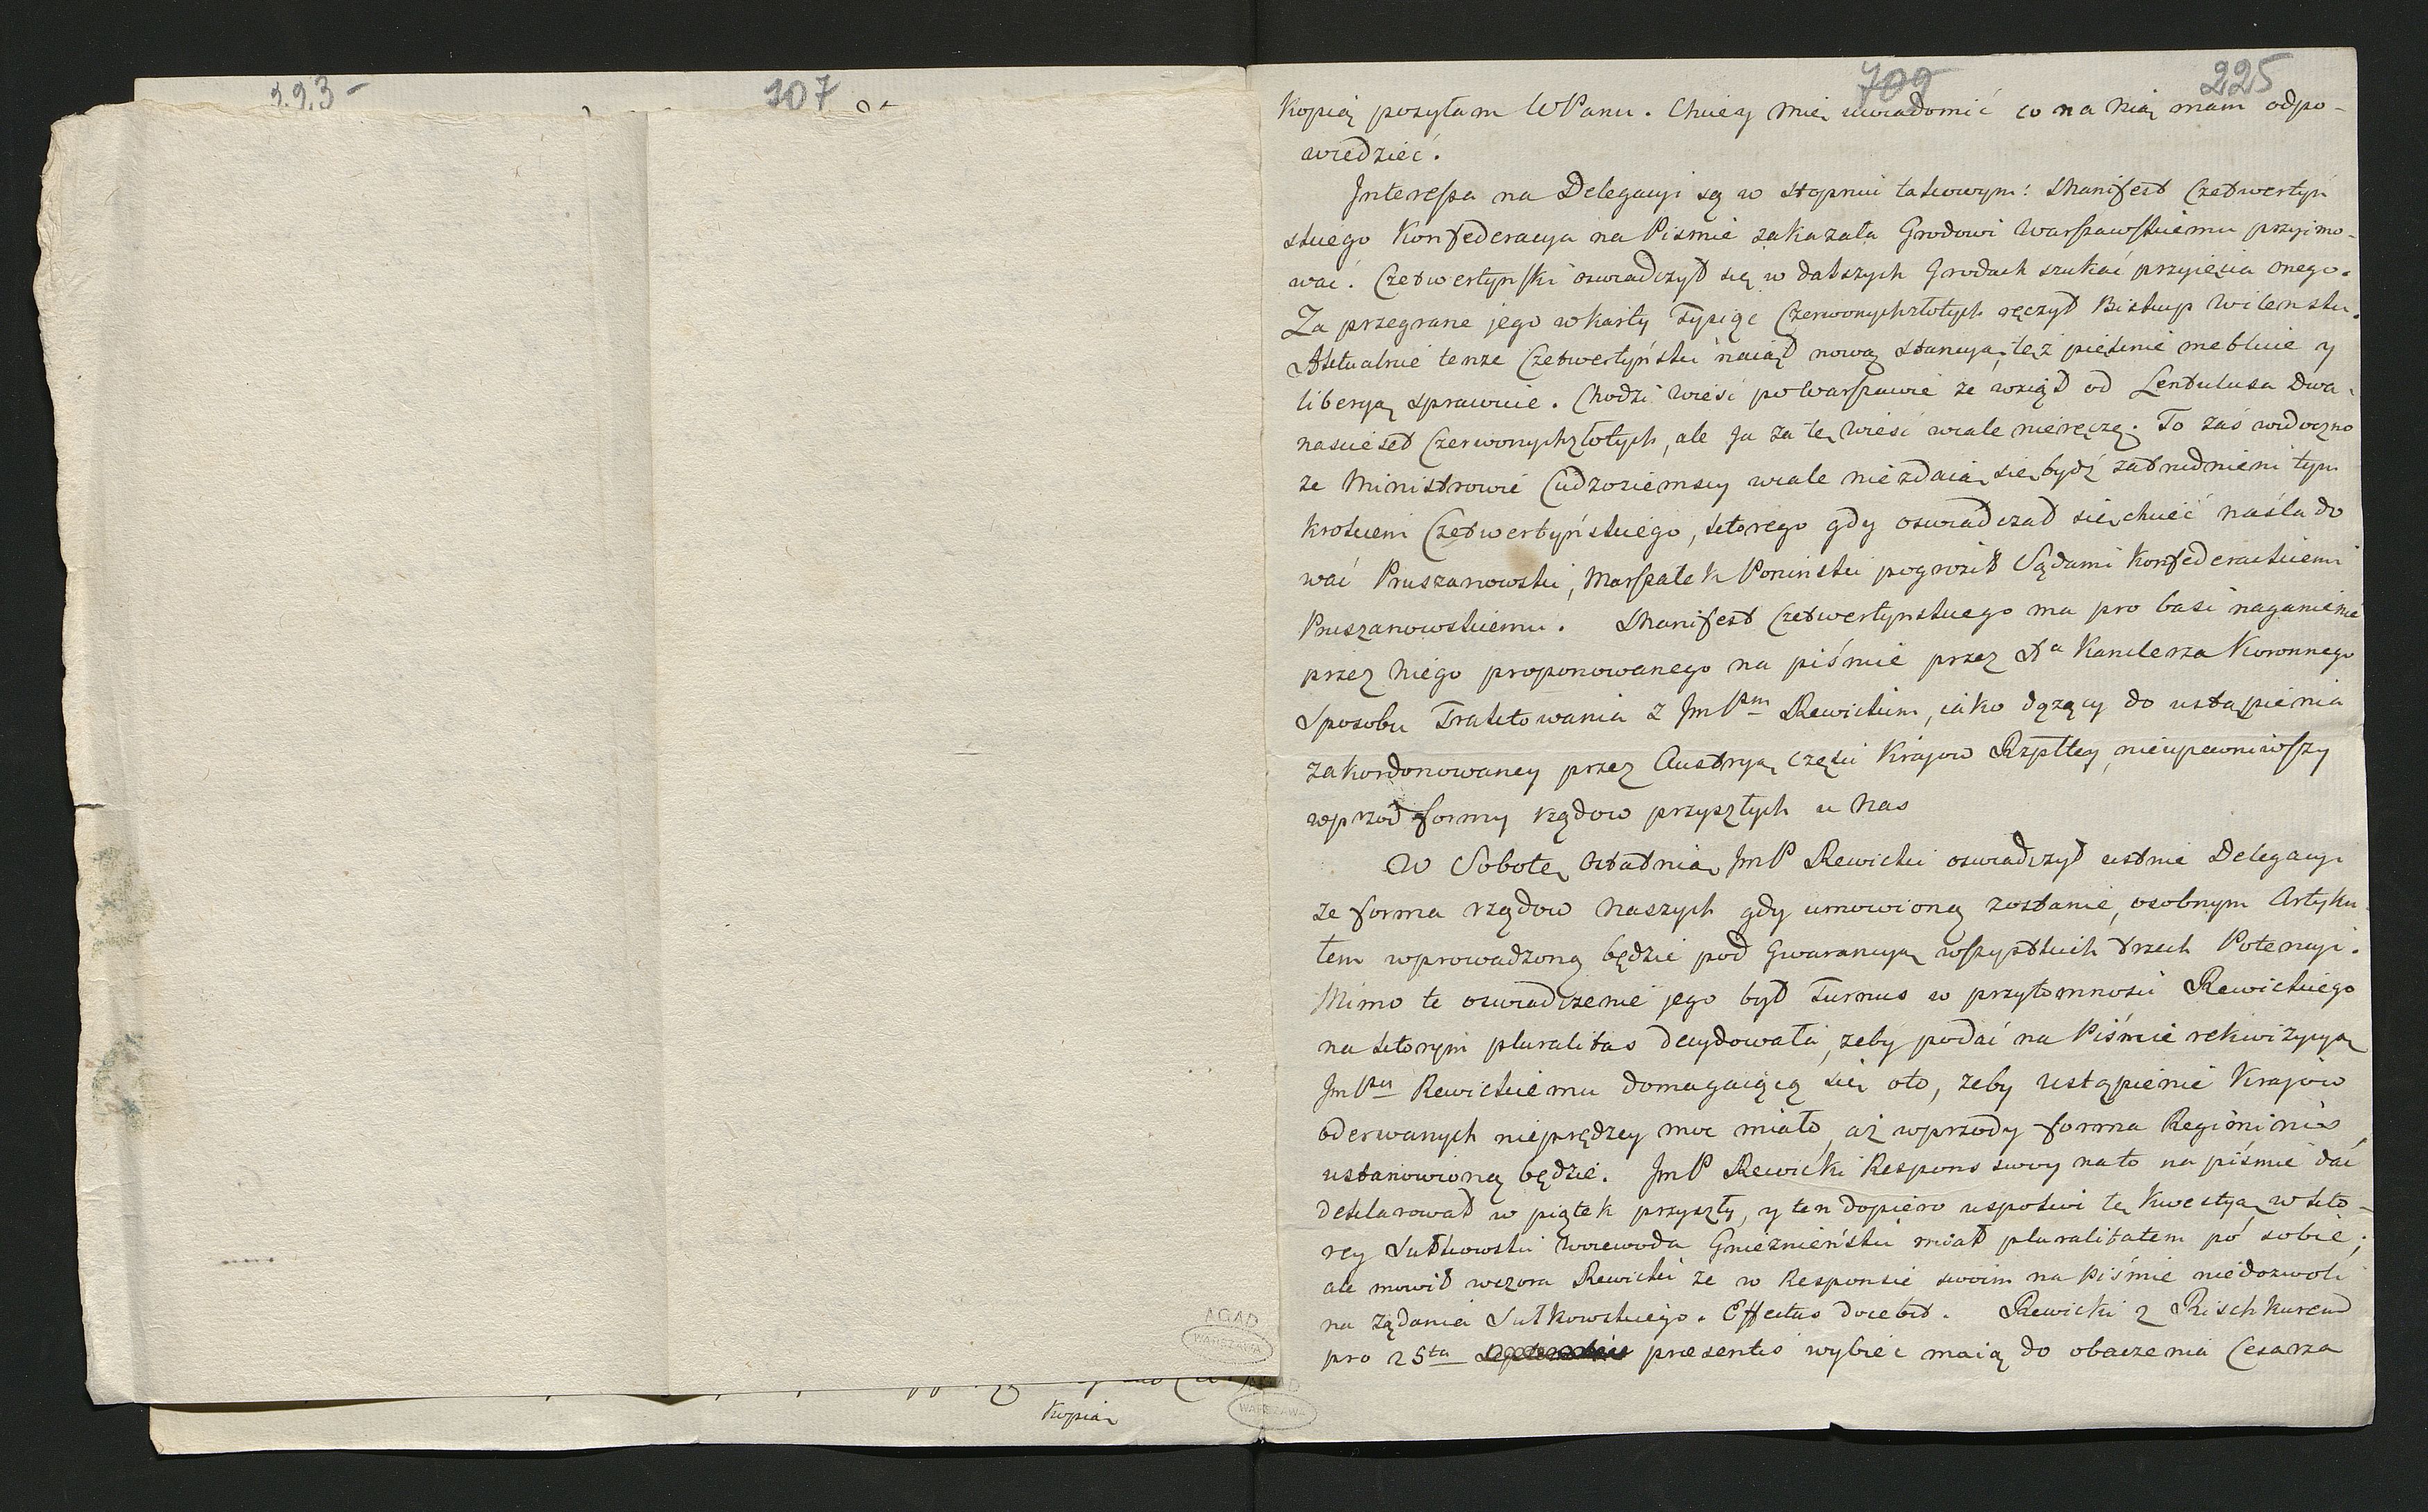 223
107
Kopią
AGAD
WARSZAWA
WARSZAWA
709
225
Kopią posyłam WPanu. Chciey mię uwiadomić co na nią mam odpo-
wiedzieć.
Interessa na Delegacyi są w stopniu takowym: Manifest Czetwertyń
skiego Konfederacya na Pismie zakazała Grodowi Warszawskiemu przyimo-
wać. Czetwertyński oswiadczył się w dalszych Grodach szukać przyięcia onego.
Za przegrane jego w karty Tysiąc Czerwonych złotych ręczył Biskup Wilenski.
Aktualnie tenże Czetwertyński naiął nową stancyą, też pięknie mebluie y
liberyą sprawuie. Chodzi wieść po Warszawie że wziął od Lentulusa dwa-
nascieset Czerwonych złotych, ale ja za tę wieść wcale nieręczę. To zaś widoczno
że Ministrowie Cudzoziemscy wcale niezdaią się bydź zatrudnieni tym
krokiem Czetwertyńskiego, ktorego gdy oswiadczał się chcieć naślado
wać Pruszanowski, Marszałek Poninski pogroził Sądami Konfederackiemi
Pruszanowskiemu. Manifest Czetwertynskiego ma pro basi naganienie
przez niego proponowanego na piśmie przez Xa Kanclerza Koronnego
Sposobu Traktowania z JmPm Rewickim, iako dążący do ustąpienia
zakordonowaney przez Austryą części Kraiow Rzpltey, nieupewniwszy
wprzod formy rządow przyszłych u nas
W Sobotę ostatnią JmP Rewicki oswiadczył ustnie Delegacyi
że forma rządow naszych gdy umowioną zostanie, osobnym Artyku
łem wprowadzoną będzie pod Gwarancyą wszystkich trzech Potencyi.
Mimo te oswiadczenie jego był Turnus w przytomnosci Rewickiego
na ktorym pluralitas decydowała, żeby podać na Piśmie rekwizycyą
JmPu Rewickiemu domagaiącą się oto, żeby ustąpienie Kraiow
oderwanych nieprędzey moc miało, aż wprzody forma Regiminis
ustanowioną będzie. JmP Rewicki Respons swoy na to na piśmie dać
deklarował w piątek przyszły, y ten dopiero uspokoi tę kwestyą, w kto-
rey Sułkowski Woiewoda Gnieznieński miał pluralitatem po sobie;
ale mowił wczora Rewicki że w Responsie swoim na piśmie niedozwoli
na żądania Sułkowskiego. Effectus docebit. Rewicki z Rischkurem
pro 25ta praesentis wybiec maią do obaczenia Cesarza